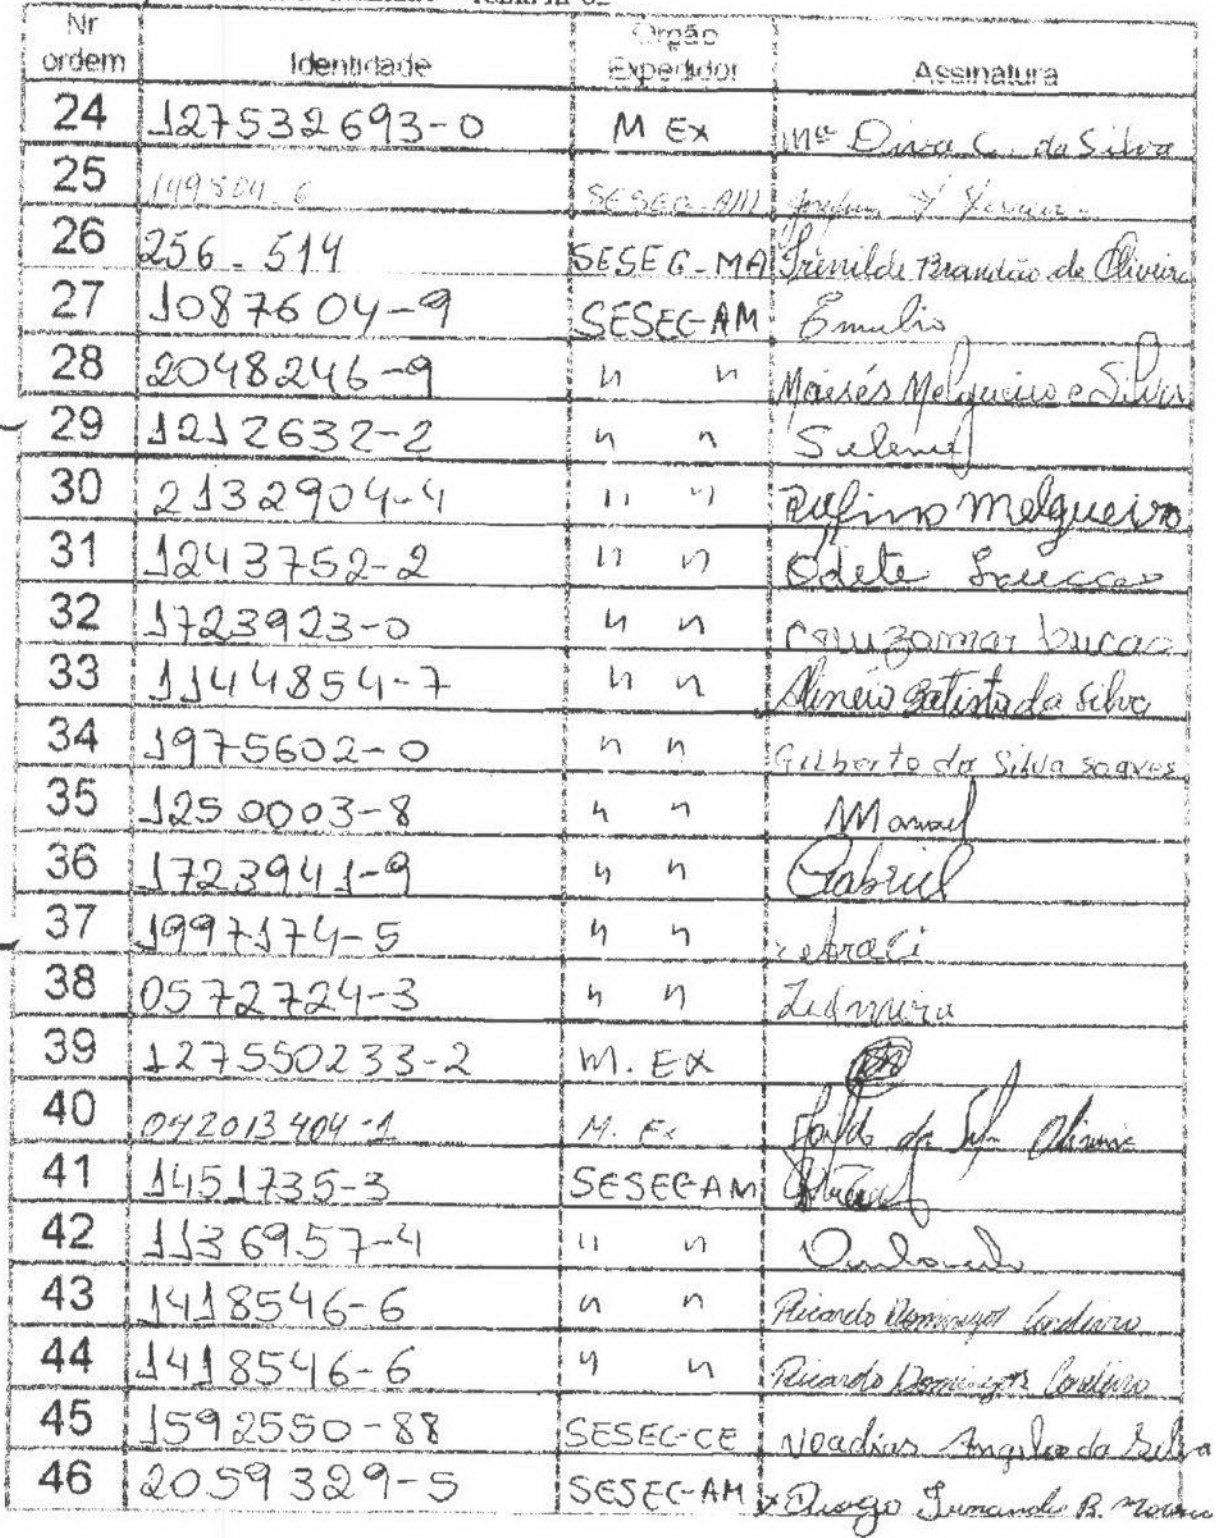 Nr ordem Identidade Orgão Expedidor Assinatura
24 127532693-0 M Ex Mª Diva C. da Silva
25 149504-6 SESEG-AM
26 256-514 SESEG-MA Irenilde Brandão de Oliveira
27 1087604-9 SESEG-AM Emulio
28 2048246-9 " " Moisés Melgueiro e Silva
29 1212632-2 " " Suleme
30 2132904-4 " " Rufino Melgueiro
31 1243752-2 " " Odete
32 1723923-0 " " Cruzomar Lucas
33 1144854-7 " " Batista da Silva
34 1975602-0 " " Gilberto da Silva Soares
35 1250003-8 " " Manoel
36 1723941-9 " " Gabriel
37 1997174-5 " "
38 0572724-3 " "
39 127550233-2 M. EX
40 042013404-1 M. Ex
41 1451735-3 SESEG-AM
42 1136957-4 " "
43 1418546-6 " " Ricardo Domingos Cordeiro
44 1418546-6 " " Ricardo Domingos Cordeiro
45 1592550-88 SESEC-CE Noadias Angelo da Silva
46 2059329-5 SESEG-AM x Diogo Fernandes B.